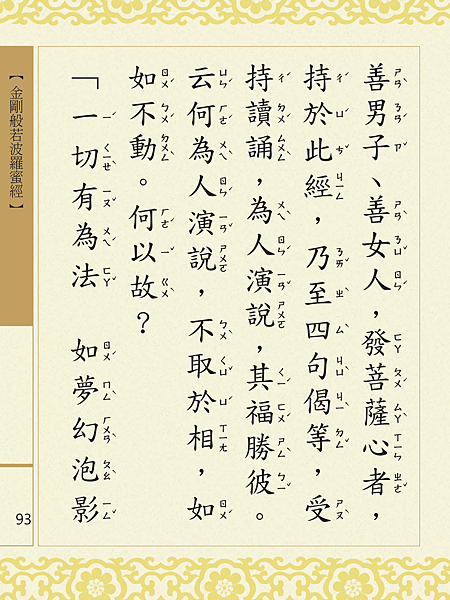 善男子、善女人，發菩薩心者，
持於此經，乃至四句偈等，受
持讀誦，為人演說，其福勝彼。
云何為人演說，不取於相，如
如不動。何以故？
「一切有為法　如夢幻泡影
【金剛般若波羅蜜經】
93